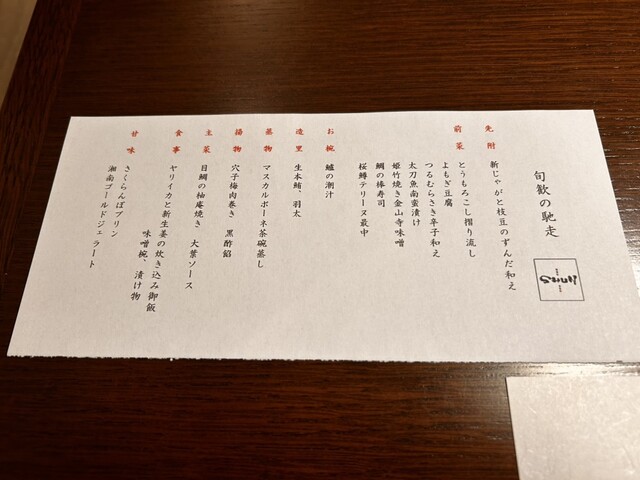 旬歓の馳走
先附 新じゃがと枝豆のずんだ和え
前菜 とうもろこし摺り流し
よもぎ豆腐
つるむらさき辛子和え
太刀魚南蛮漬け
姫竹焼き金山寺味噌
鯛の棒寿司
桜鱒テリーヌ最中
お椀 鱸の潮汁
造里 生本鮪、羽太
蒸物 マスカルポーネ茶碗蒸し
揚物 穴子梅肉巻き 黒酢餡
主菜 目鯛の柚庵焼き 大葉ソース
食事 ヤリイカと新生姜の炊き込み御飯
味噌椀、漬け物
甘味 さくらんぼプリン
湘南ゴールドジェラート